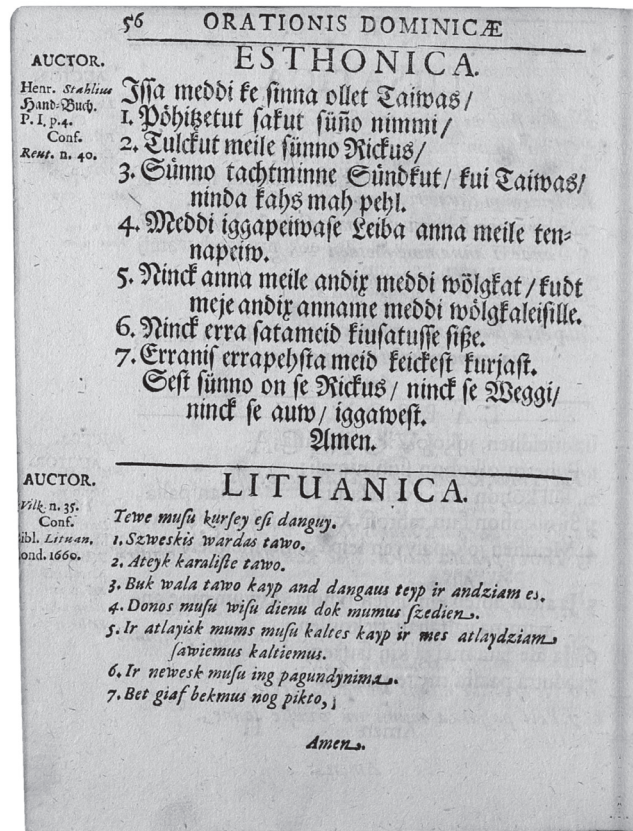 56 ORATIONIS DOMINICÆ
ESTHONICA.
AUCTOR.
Henr. Stahlius
Hand-Buch.
P. I, p. 4.
Conf.
Reut. n. 40.
Issa meddi ke sinna ollet Taiwas/
1. Pöhitzetut sakut süño nimmi/
2. Tulckut meile sünno Rickus/
3. Sünno tachtminne Sündkut/ kui Taiwas/
ninda kahs mah pehl.
4. Meddi iggapeiwase Leiba anna meile ten-
napeiw.
5. Ninck anna meile andix meddi wölgkat/ kudt
meje andix anname meddi wölgkaleisille.
6. Ninck erra satameid kiusatusse sisse.
7. Erranis errapehsta meid keickest kurjast.
Sest sünno on se Rickus/ ninck se Weggi/
ninck se auw/ iggawest.
Amen.
LITUANICA.
AUCTOR.
Vilk. n. 35.
Conf.
ibl. Lituan.
ond. 1660.
Tewe musu kursey esi danguy.
1. Szweskis wardas tawo.
2. Ateyk karaliste tawo.
3. Buk wala tawo kayp and dangaus teyp ir andziam es.
4. Donos musu wisu dienu dok mumus szedien.
5. Ir atlayisk mums musu kaltes kayp ir mes atlaydziam
sawiemus kaltiemus.
6. Ir newesk musu ing pagundynima.
7. Bet giaf bekmus nog pikto,
Amen.